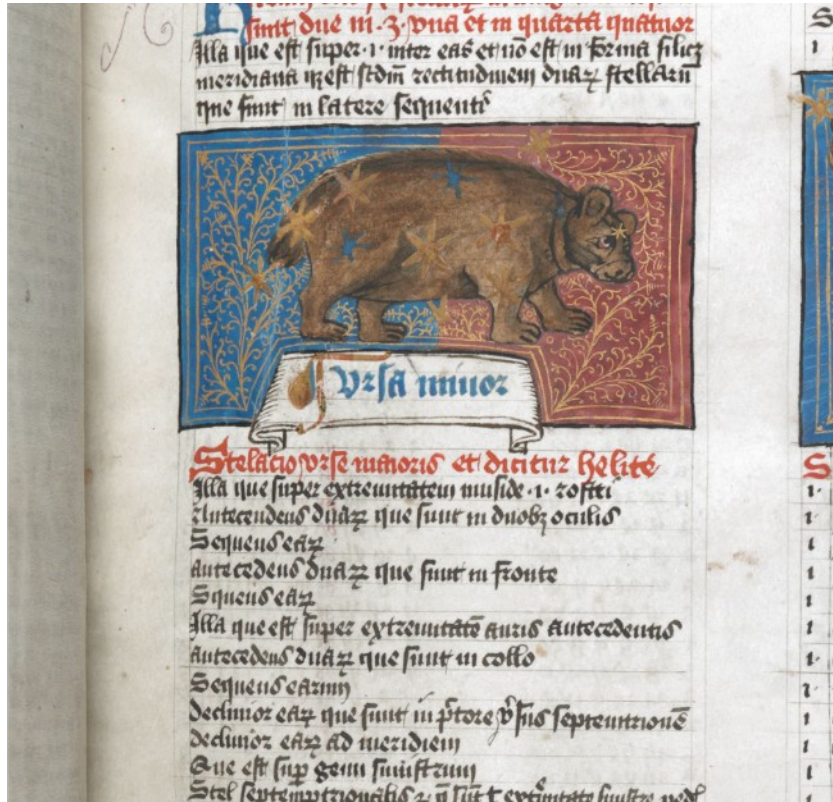 sunt due in .3. una et in quarta quatuor
Illa que est super .1. inter eas et nō est in forma
meridiana est scdm rectitudinem duaꝝ stellarū
que sunt in latere sequenti
Ursa minor
Stelacio urse maioris et dicitur helite
Illa que super extremitatem muside .1. rostri
Antecendens duaꝝ que sunt in duobꝫ oculis
Sequens eaꝝ
antecedens duaꝝ que sunt in fronte
Squens eaꝝ
Illa que est super extremitatē auris antecedentis
antecedens duaꝝ que sunt in collo
Sequens earum
declinior eaꝝ que sunt in septentrionē
declinior eaꝝ ad meridiem
Que est sup genu sinistrum
Stel septemptrionalis